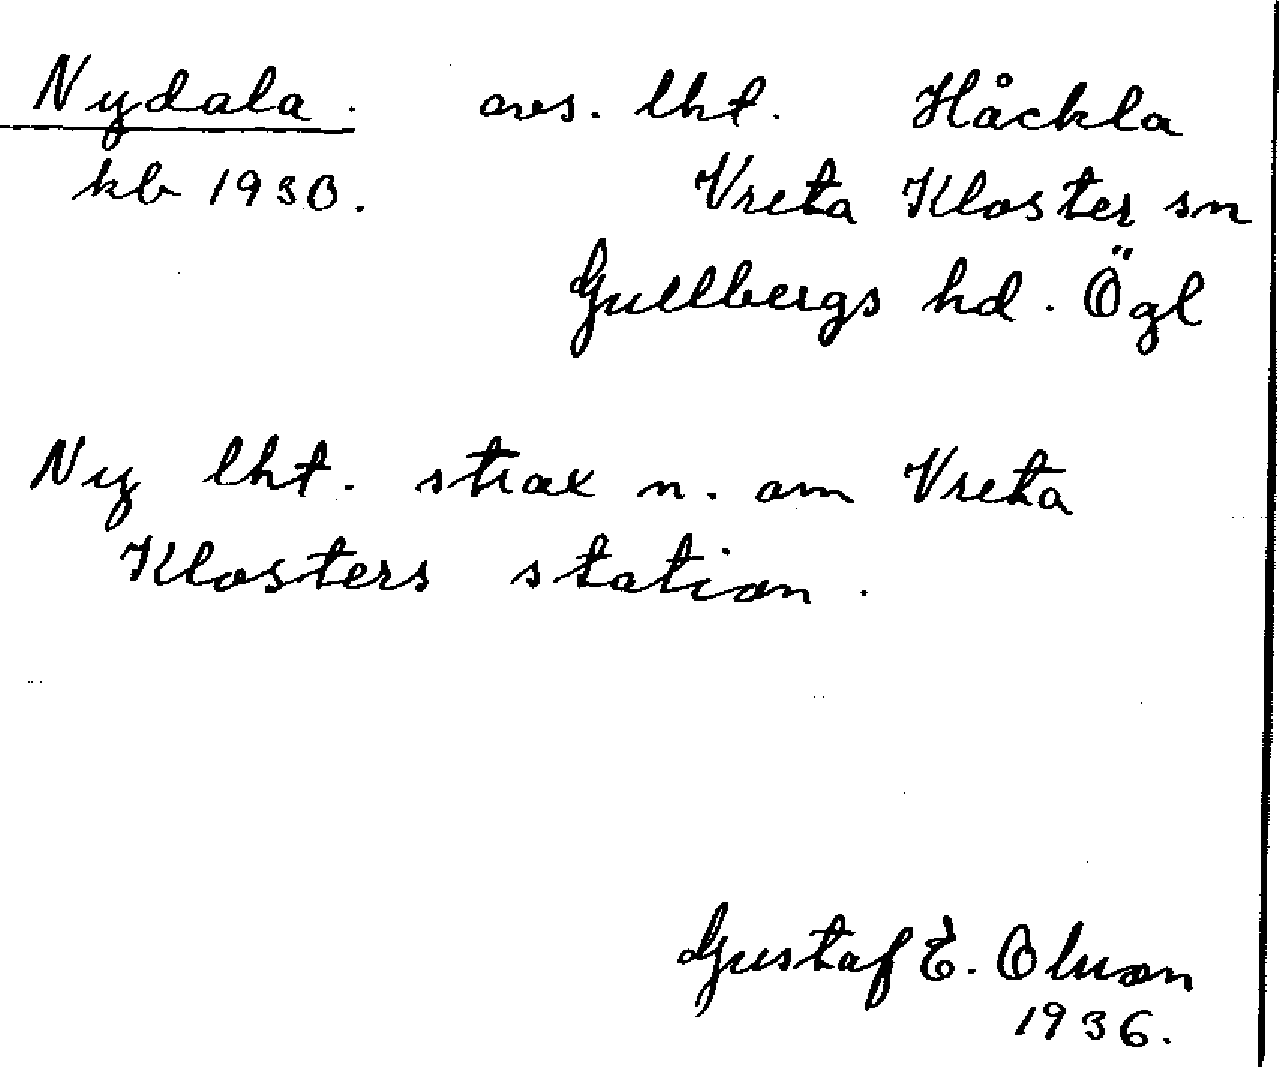 Nydala. avs. lht. Håckla
kb 1930. Vreta Kloster sn
Gullbergs hd. Ögl
Ny lht. strax n. om Vreta
Klosters station.
Gustaf E. Olsson
1936.